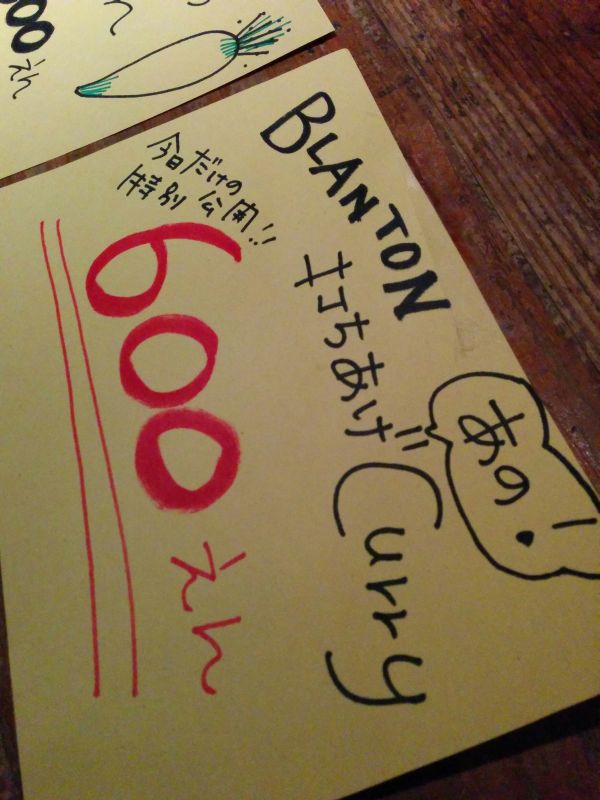 あの!
BLANTON
打ちあげ Curry
今日だけの
特別 公開!!
600えん
00えん